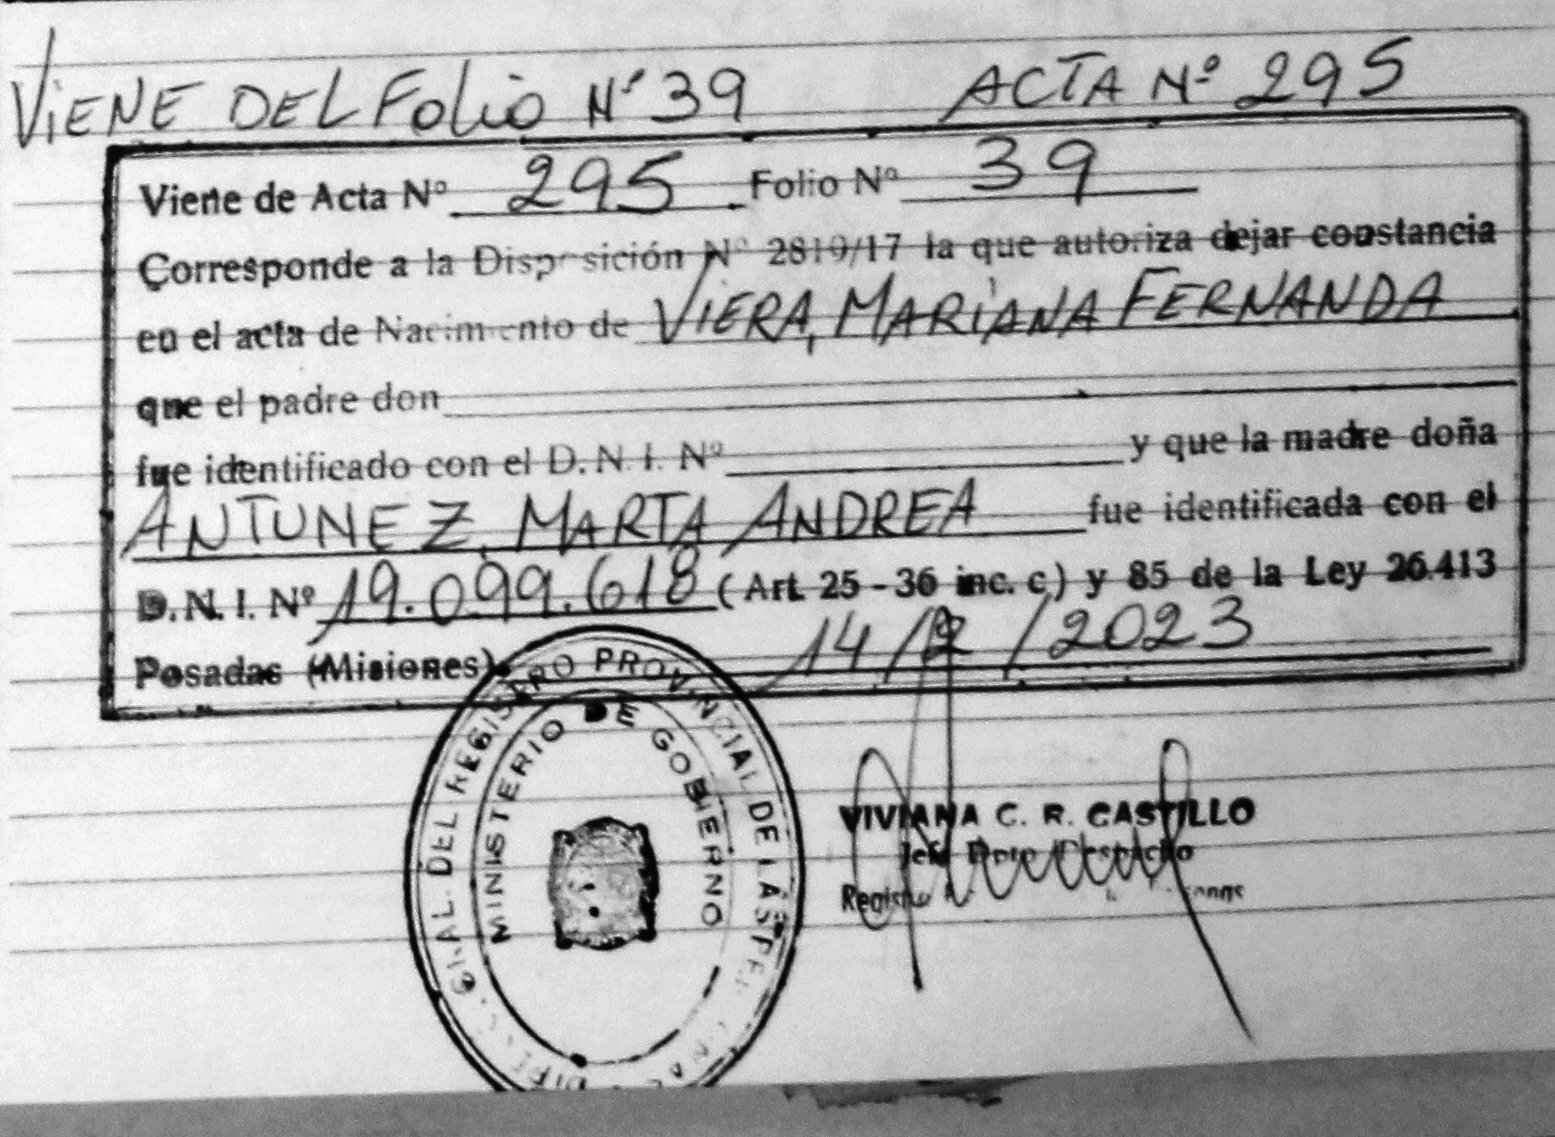 VIENE DEL FOLIO Nº 39 ACTA Nº 295
Viene de Acta Nº 295 Folio Nº 39
Corresponde a la Disposición Nº 2819/17 la que autoriza dejar constancia
en el acta de Nacimiento de VIERA, MARIANA FERNANDA
que el padre don
fue identificado con el D. N. I. Nº y que la madre doña
ANTUNEZ, MARTA ANDREA fue identificada con el
D. N. I. Nº 19.099.618 (Art. 25 - 36 inc. c) y 85 de la Ley 26.413
Posadas (Misiones), 14/2/2023
GRAL. DEL REGISTRO PROVINCIAL DE LAS PER
MINISTERIO DE GOBIERNO
VIVIANA C. R. CASTILLO
Jefe Dpto Despacho
Registro